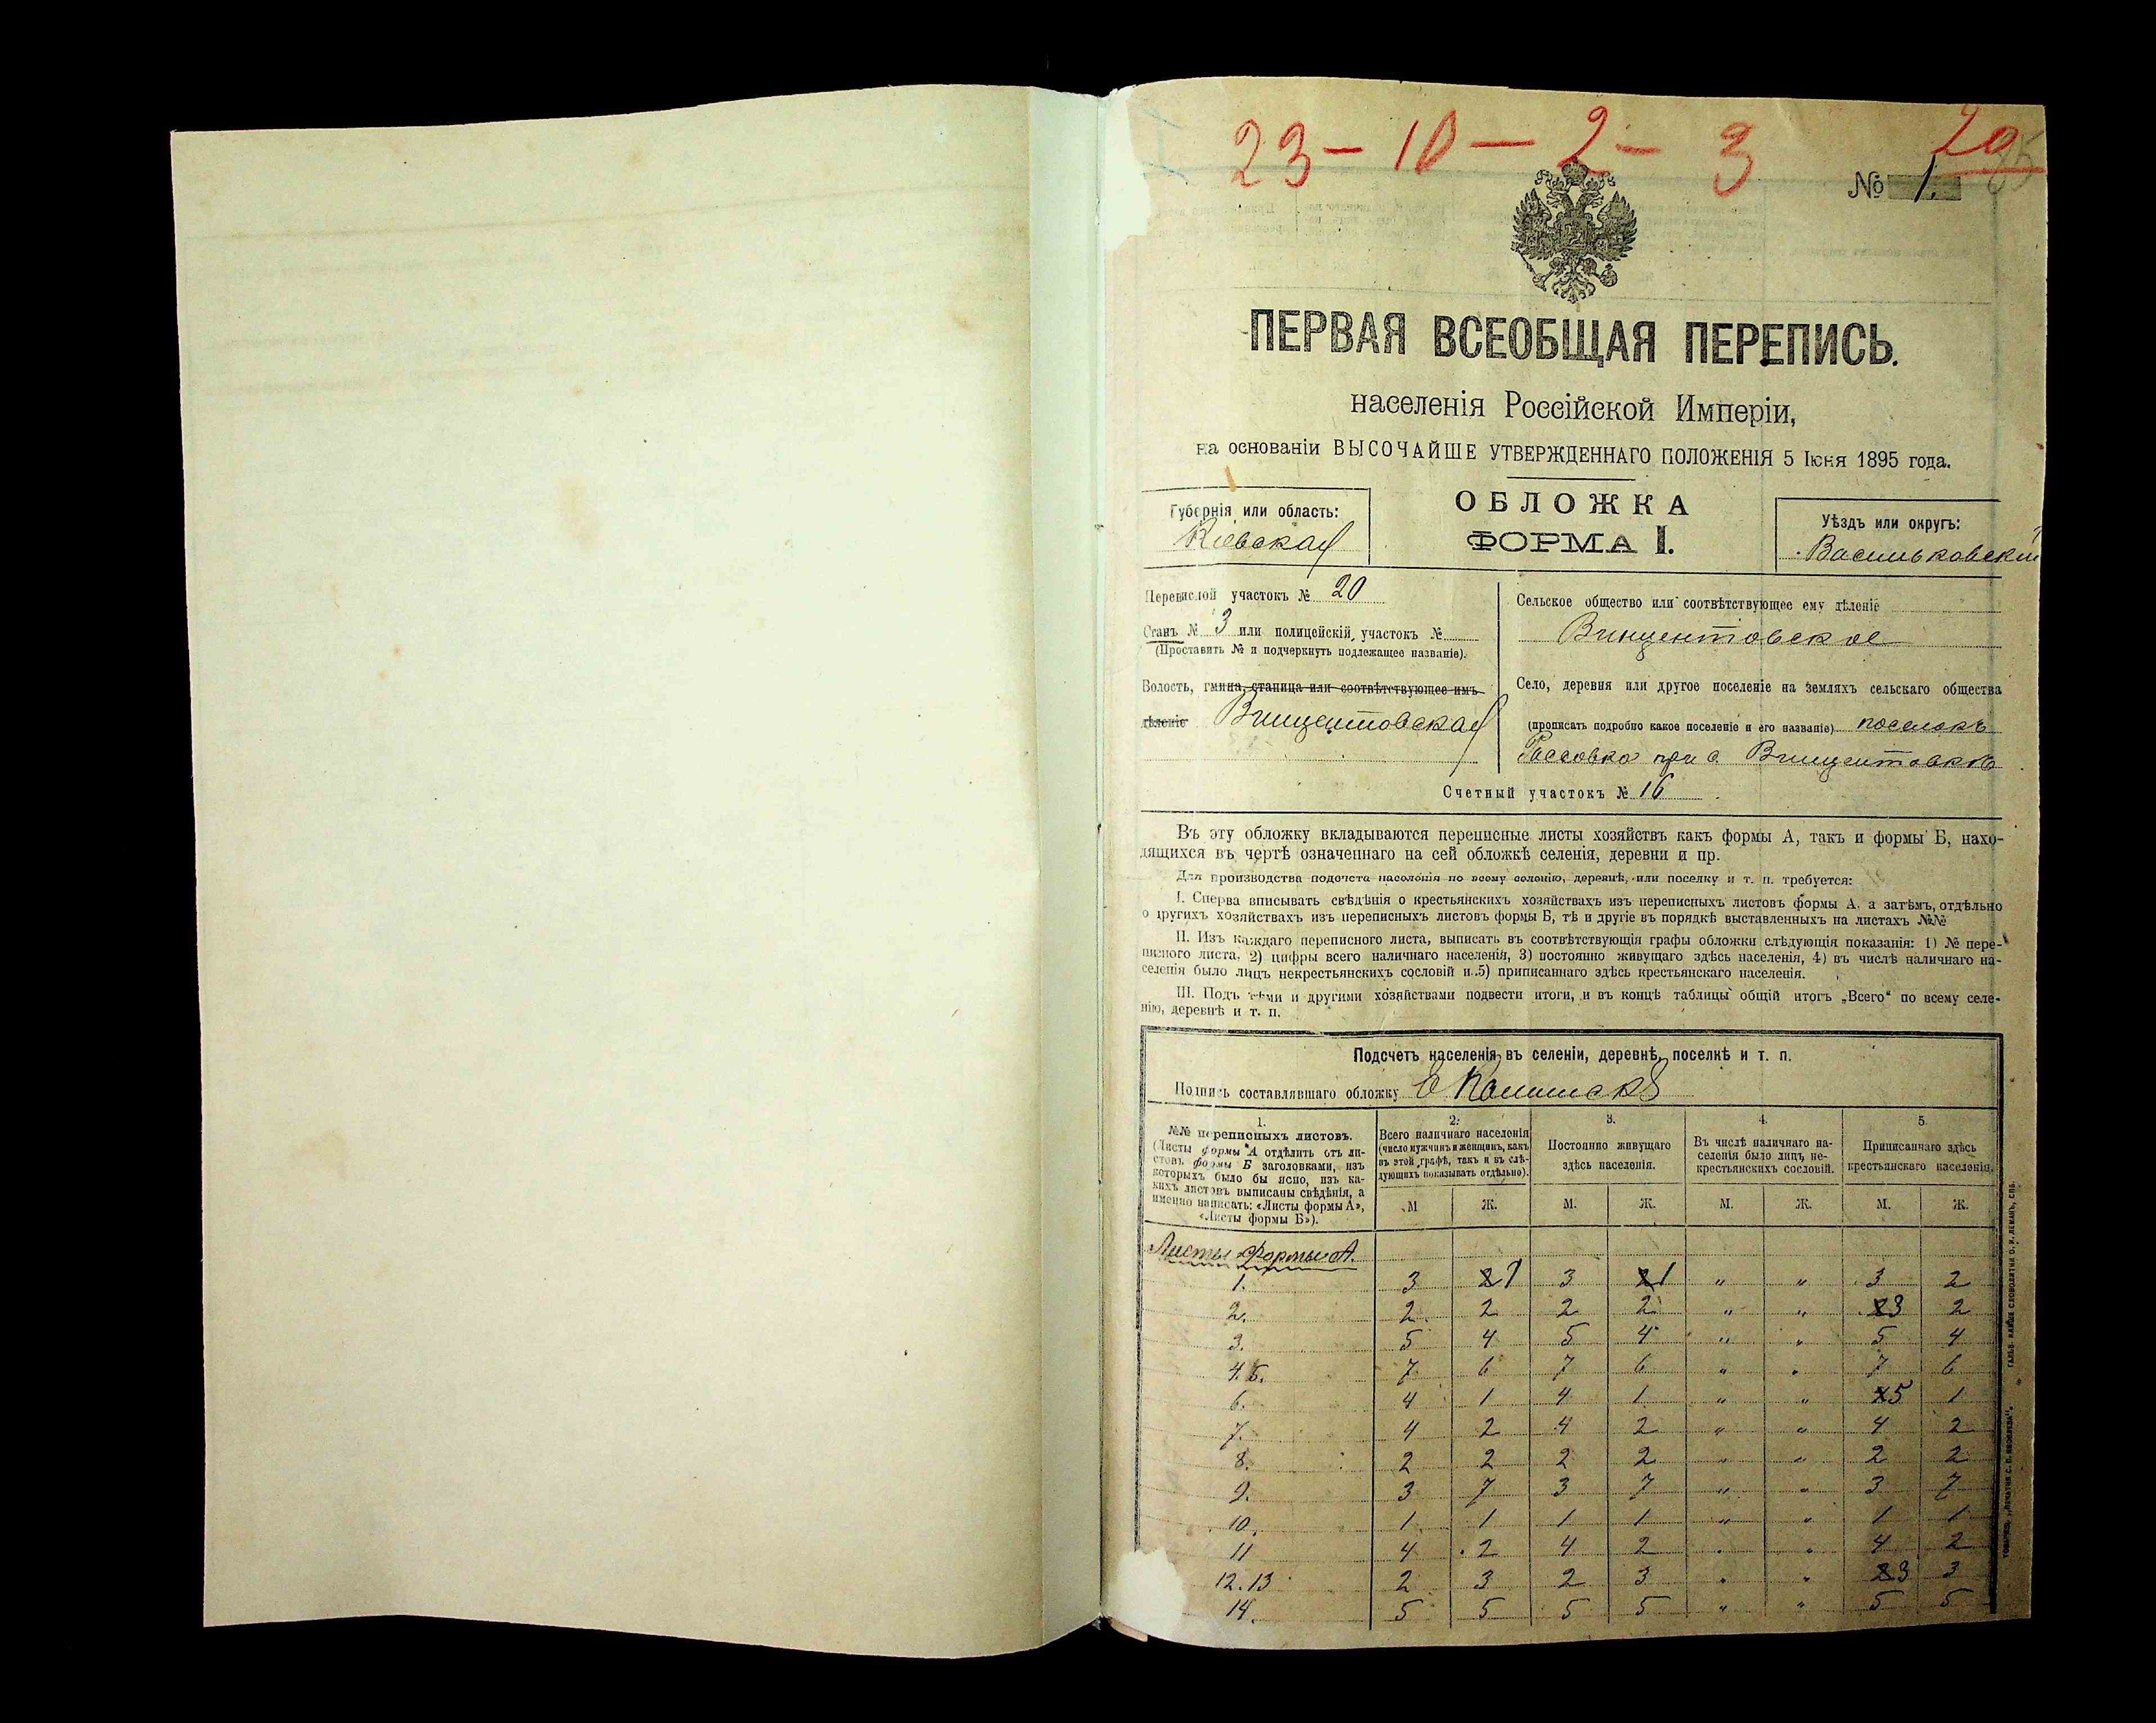 23 - 10 - 2 - 3 20
№ 1.
ПЕРВАЯ ВСЕОБЩАЯ ПЕРЕПИСЬ.
населенія Россійской Имперіи,
на основаніи ВЫСОЧАЙШЕ УТВЕРЖДЕННАГО ПОЛОЖЕНІЯ 5 Іюня 1895 года.
ОБЛОЖКА
ФОРМА I.
Губернія или область:
Кіевская
Уѣздъ или округъ:
Васильковскій
Переписной участокъ № 20
Станъ № 3 или полицейскій участокъ №
(Проставить № и подчеркнуть подлежащее названіе).
Волость, гмина, станица или соотвѣтствующее имъ
дѣленіе Винцентовская
Сельское общество или соотвѣтствующее ему дѣленіе
Винцентовское
Село, деревня или другое поселеніе на земляхъ сельскаго общества
(прописать подробно какое поселеніе и его названіе) поселокъ
при с. Винцентовкѣ
Счетный участокъ № 16
Въ эту обложку вкладываются переписные листы хозяйствъ какъ формы А, такъ и формы Б, нахо-
дящихся въ чертѣ означеннаго на сей обложкѣ селенія, деревни и пр.
Для производства подсчета населенія по всему селенію, деревнѣ, или поселку и т. п. требуется:
I. Сперва вписывать свѣдѣнія о крестьянскихъ хозяйствахъ изъ переписныхъ листовъ формы А, а затѣмъ, отдѣльно
о другихъ хозяйствахъ изъ переписныхъ листовъ формы Б, тѣ и другіе въ порядкѣ выставленныхъ на листахъ №№
II. Изъ каждаго переписного листа, выписать въ соотвѣтствующія графы обложки слѣдующія показанія: 1) № пере-
писного листа, 2) цифры всего наличнаго населенія, 3) постоянно живущаго здѣсь населенія, 4) въ числѣ наличнаго на-
селенія было лицъ некрестьянскихъ сословій и 5) приписаннаго здѣсь крестьянскаго населенія.
III. Подъ тѣми и другими хозяйствами подвести итоги, и въ концѣ таблицы общій итогъ „Всего“ по всему селе-
нію, деревнѣ и т. п.
Подсчетъ населенія въ селеніи, деревнѣ, поселкѣ и т. п.
Подпись составлявшаго обложку
1.
№№ переписныхъ листовъ.
(Листы формы А отдѣлить отъ ли-
стовъ формы Б заголовками, изъ
которыхъ было бы ясно, изъ ка-
кихъ листовъ выписаны свѣдѣнія, а
именно написать: «Листы формы А»,
«Листы формы Б»).
2.
Всего наличнаго населенія
(число мужчинъ и женщинъ, какъ
въ этой графѣ, такъ и въ слѣ-
дующихъ показывать отдѣльно).
3.
Постоянно живущаго
здѣсь населенія.
4.
Въ числѣ наличнаго на-
селенія было лицъ не-
крестьянскихъ сословій.
5.
Приписаннаго здѣсь
крестьянскаго населенія.
М Ж. М. Ж. М. Ж. М. Ж.
Листы формы А.
1. 3 2 1 3 2 1 " " 3 2
2. 2 2 2 2 " " 2 3 2
3. 5 4 5 4 " " 5 4
4.5. 7 6 7 6 " " 7 6
6. 4 1 4 1 " " 4 5 1
7. 4 2 4 2 " " 4 2
8. 2 2 2 2 " " 2 2
9. 3 7 3 7 " " 3 7
10. 1 1 1 1 " " 1 1
11 4 2 4 2 " " 4 2
12.13 2 3 2 3 " " 2 3 3
14. 5 5 5 5 " " 5 5